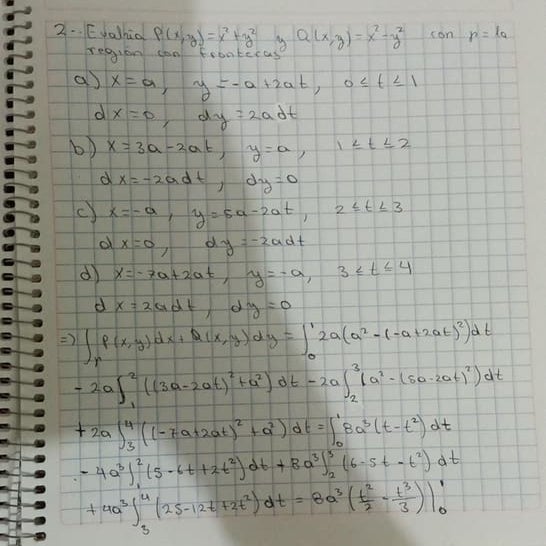 2.- Evalúa P(x,y)=x²+y² y Q(x,y)=x²-y² con p=la
región con fronteras
a) x=a, y=-a+2at, 0≤t≤1
dx=0, dy=2adt
b) x=3a-2at, y=a, 1≤t≤2
dx=-2adt, dy=0
c) x=-a, y=5a-2at, 2≤t≤3
dx=0, dy=-2adt
d) x=-7a+2at, y=-a, 3≤t≤4
dx=2adt, dy=0
=> ∫_p P(x,y)dx+Q(x,y)dy = ∫_0^1 2a(a²-(-a+2at)²)dt
-2a∫_1^2 ((3a-2at)²+a²)dt -2a∫_2^3 (a²-(5a-2at)²)dt
+2a∫_3^4 ((-7a+2at)²+a²)dt = ∫_0^1 8a³(t-t²)dt
-4a³∫_1^2 (5-6t+2t²)dt + 8a³∫_2^3 (6-5t-t²)dt
+4a³∫_3^4 (25-12t+2t²)dt = 8a³(t²/2 - t³/3)|_0^1